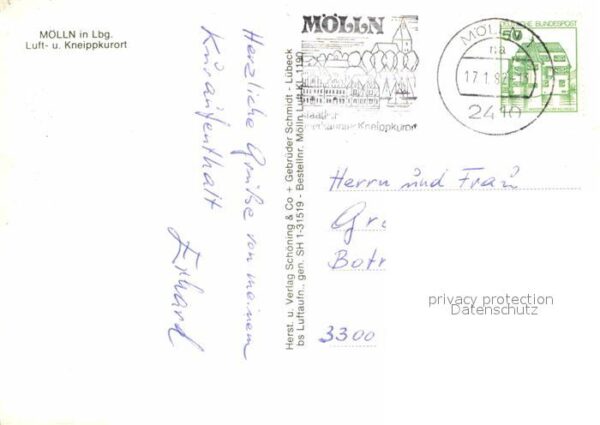 MÖLLN in Lbg.
Luft- u. Kneippkurort
Herzliche Grüße von meinem
Kuraufenthalt
Erhard
Herst. u. Verlag Schöning & Co + Gebrüder Schmidt - Lübeck
bs Luftaufn., gen. SH 1-31519 - Bestellnr. Mölln Luft KL 1190
MÖLLN
Kneippkurort
MÖLLN 1
na
17.1.8
2410
DEUTSCHE BUNDESPOST
50
Herrn und Frau
Gr
Botr
3300
privacy protection
Datenschutz